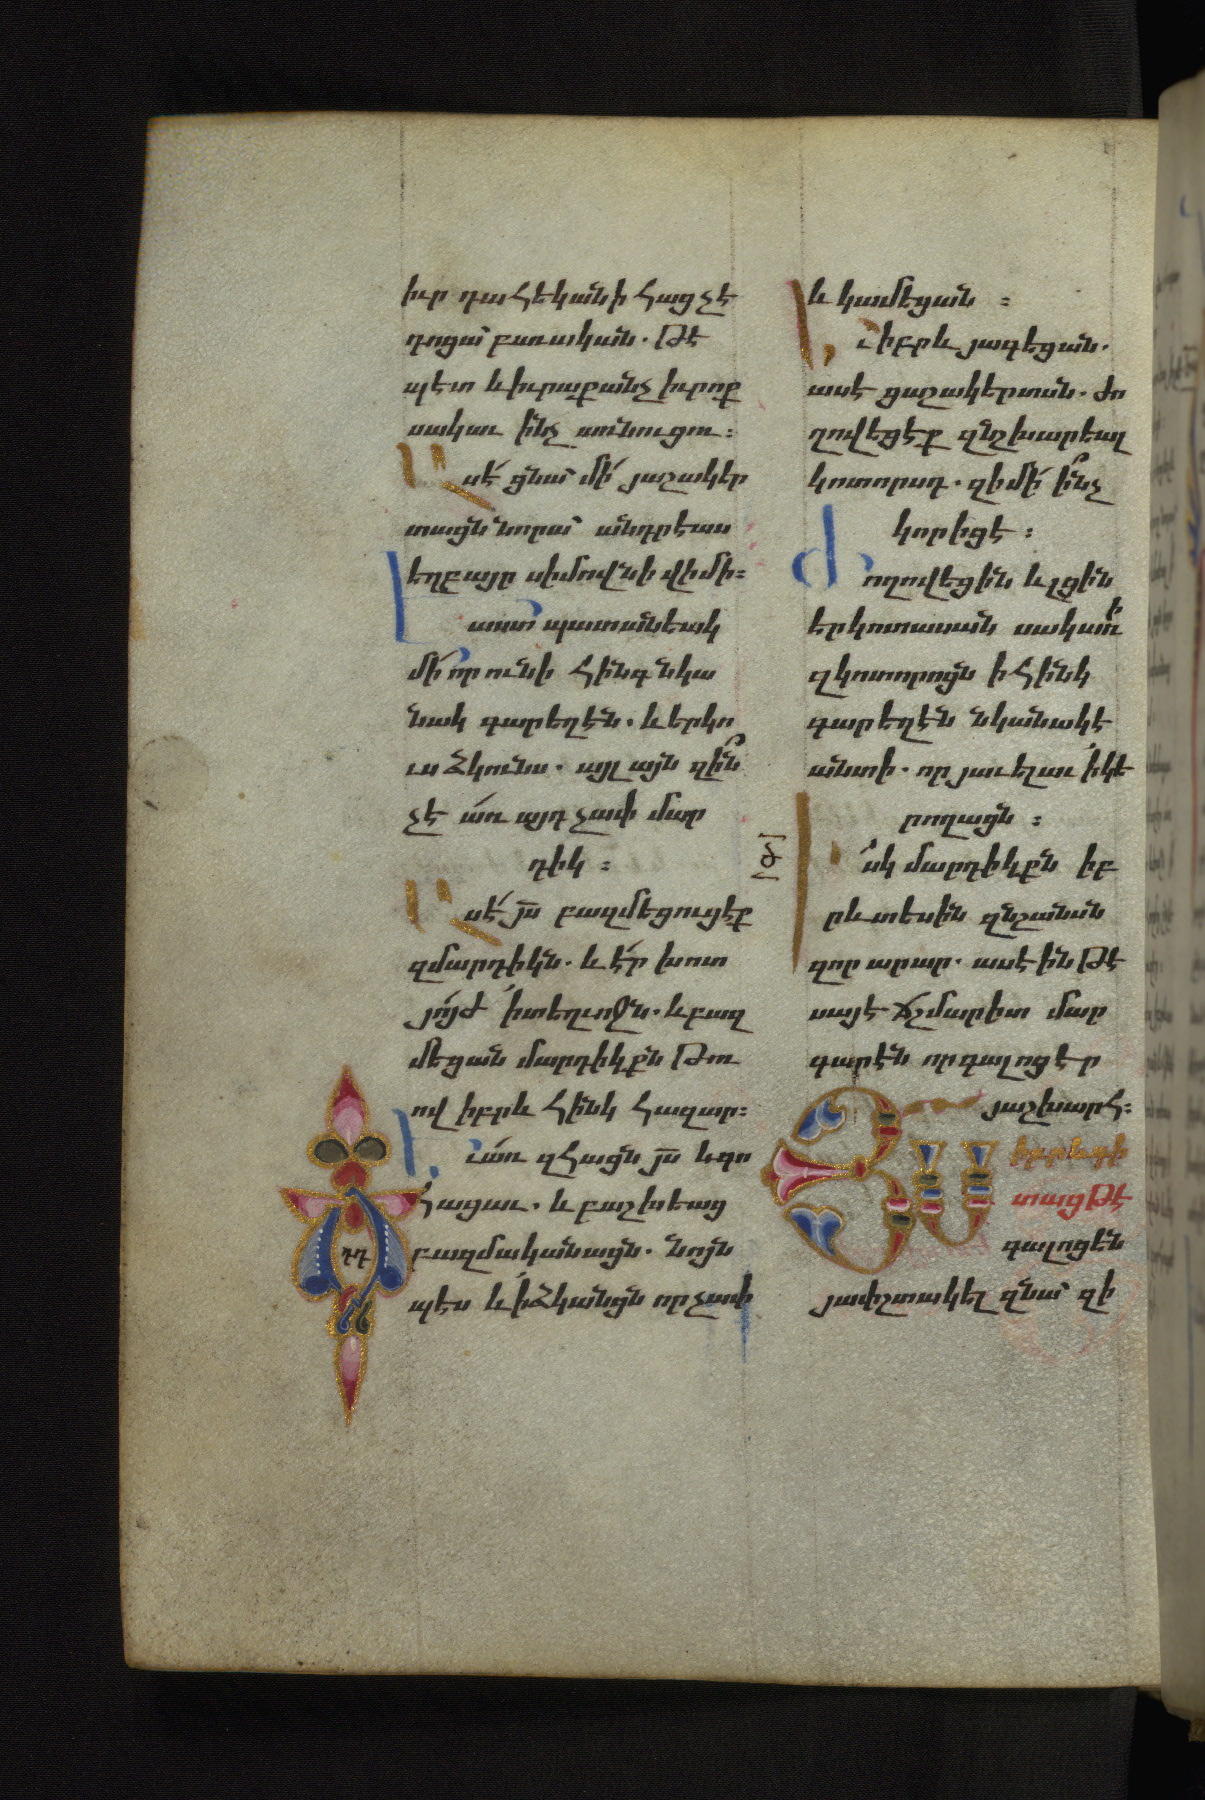 իւր դահեկանի հաց չէ
դոցա՝ բաւական. թէ
պէտ և իւրաքանչ իւրոք
սակաւ ինչ առնուցու։
Ասէ ցնա՝ մի յաշակեր
տացն նորա՝ անդրէաս
եղբայր սիմովնի վիմի։
Է աստ պատանեակ
մի որ ունի հինգ նկա
նակ գարեղէն. և երկո
ւս ձկունս. այլ այն զին
չէ առ այդ չափ մար
դիկ։
Ասէ յս բազմեցուցէք
զմարդիկն. և էր խոտ
յոյժ ի տեղւոջն. և բազ
մեցան մարդիկքն թու
ով իբրև հինկ հազար։
Եւ առ զհացն յս և գո
հացաւ. և բաշխեաց
բազմականացն. նոյն
պէս և ի ձկանցն որչափ
դդ
և կամեցան։
Եւ իբրև յագեցան.
ասէ ցաշակերտսն. ժո
ղովեցէք զնշխարեալ
կոտորսդ. զի մի ինչ
կորիցէ։
Ժողովեցին և լցին
երկոտասան սակառի
զկոտորոցն ի հինկ
գարեղէն նկանակէ
անտի. որ յաւելաւ ի կե
րողացն։
Իսկ մարդիկքն իբ
րև տեսին զնշանսն
զոր արար. ասէին թէ
սայ է ճշմարիտ մար
գարէն որ գալոց էր
յաշխարհ։
ՅՍ իբրև գի
տաց թէ
գալոց են
յափշտակել զնա՝ զի